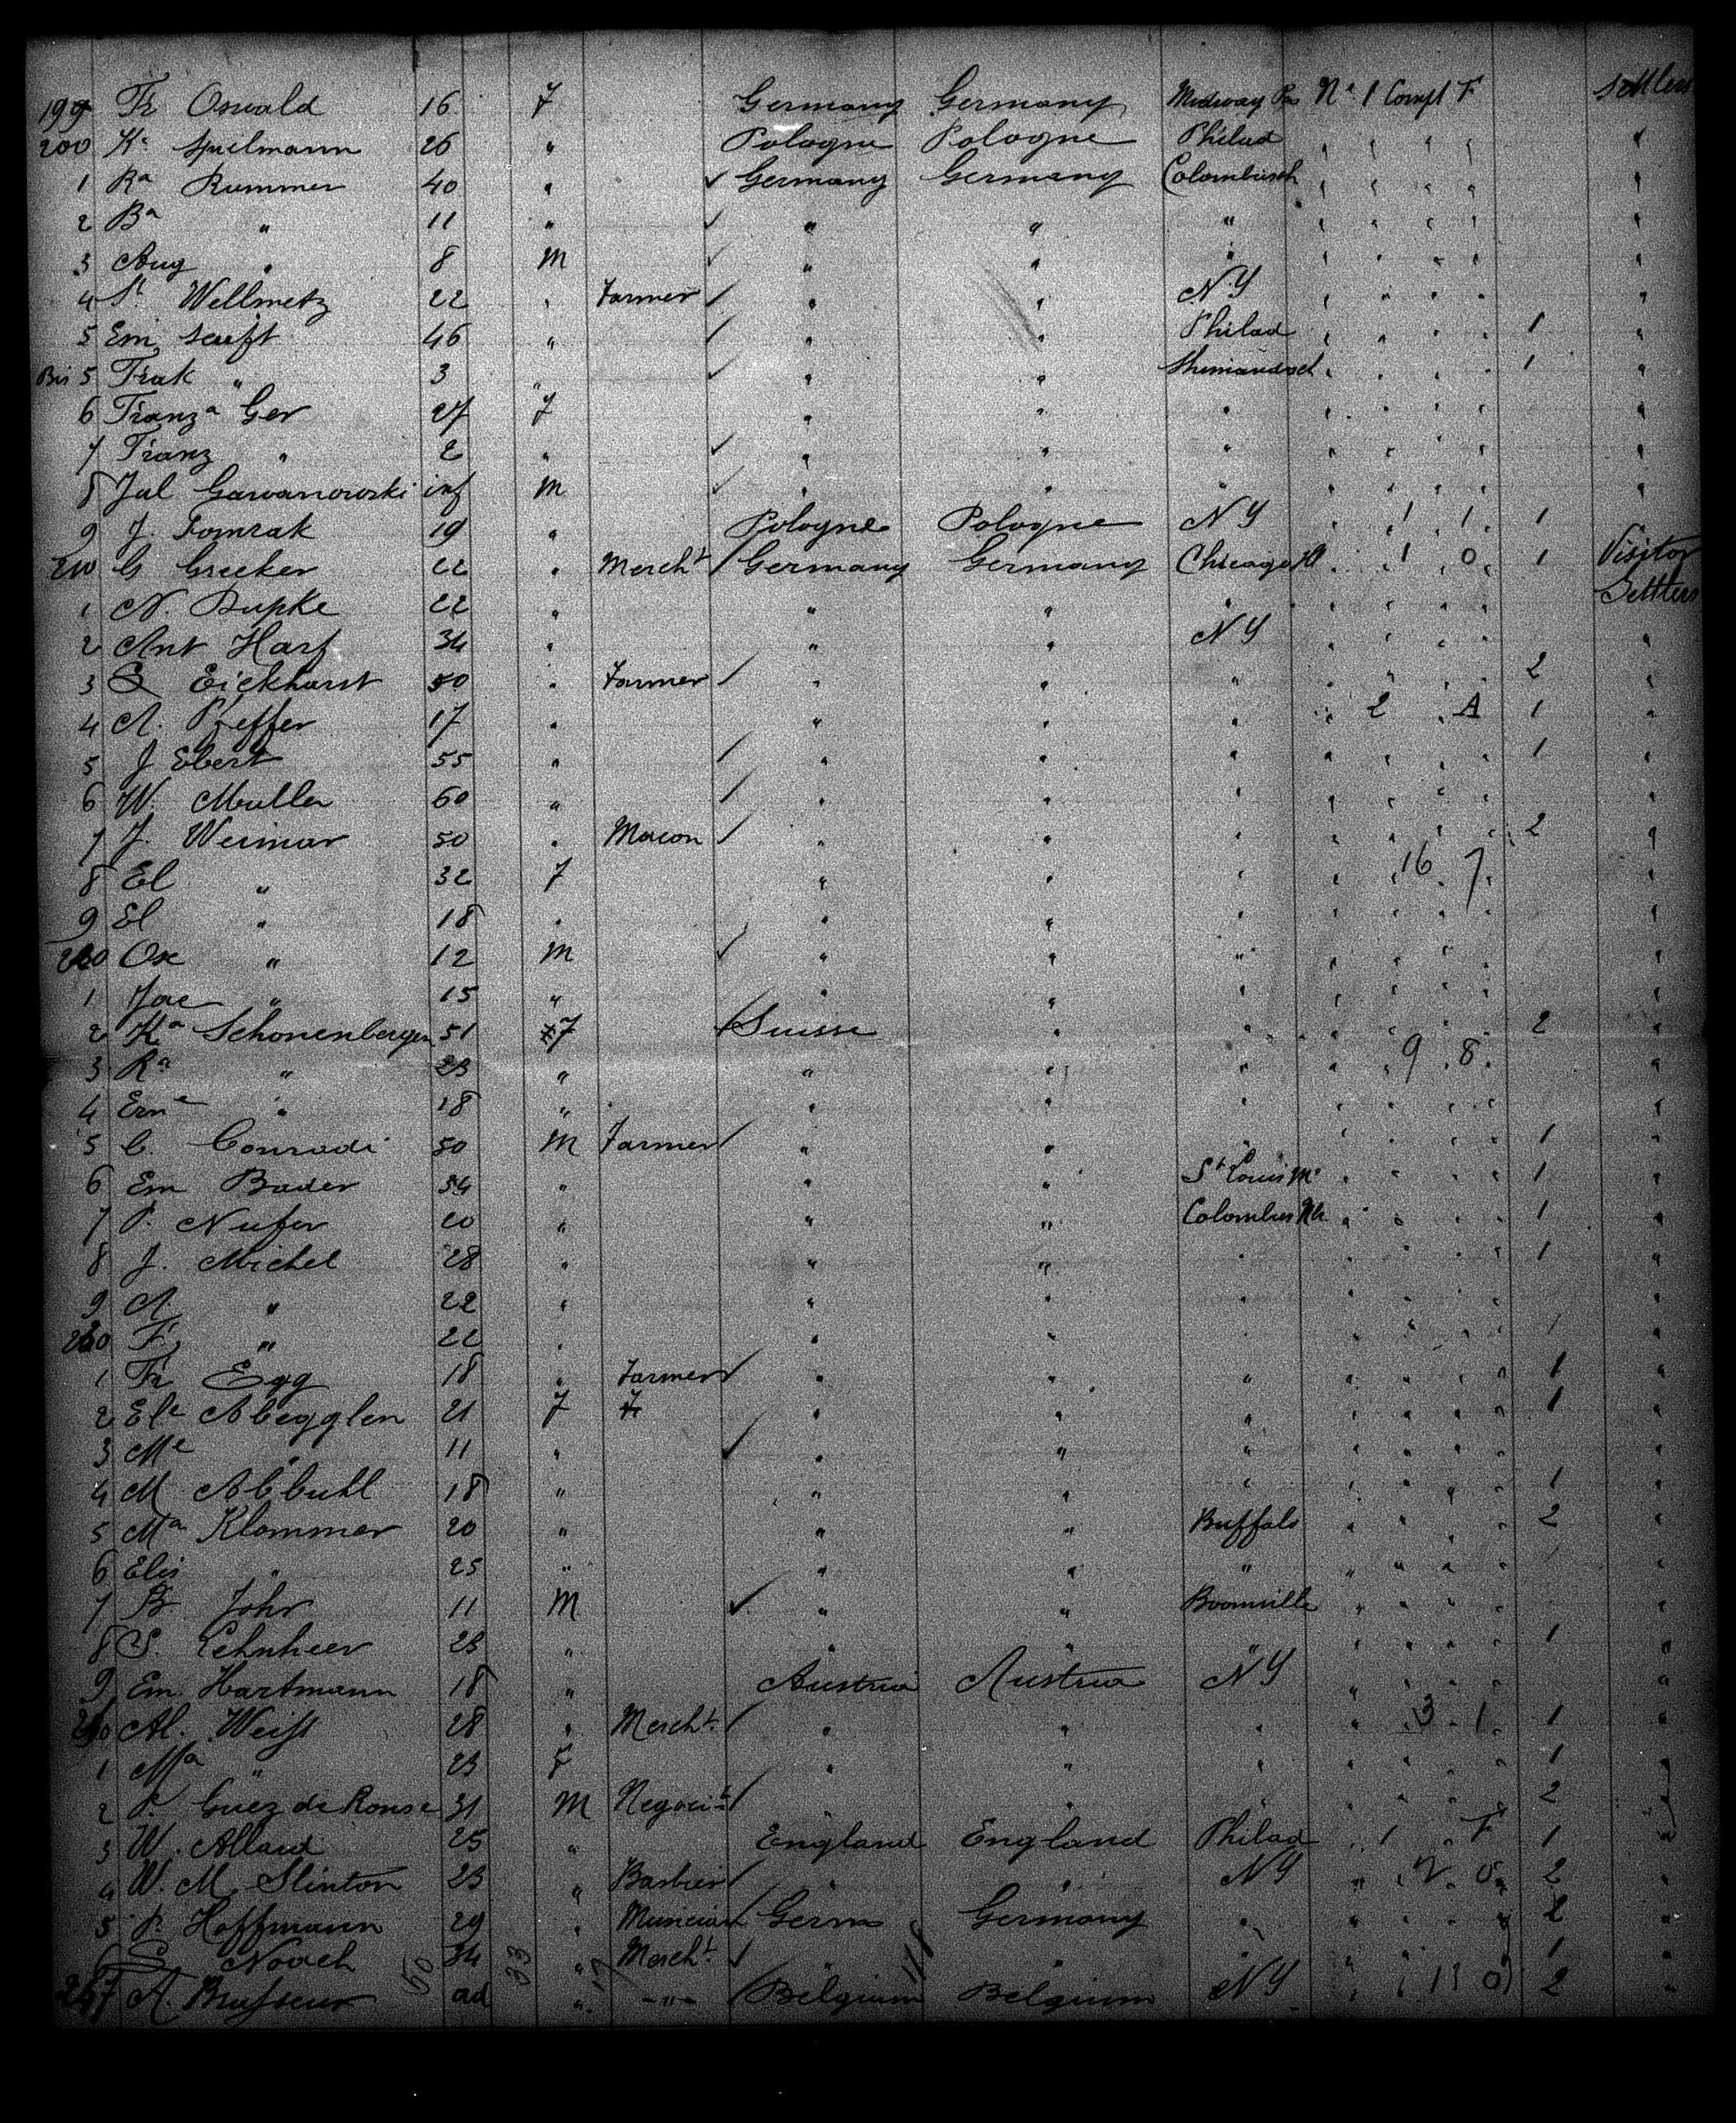 199 Fr Oswald 16 F Germany Germany Midway Pa Nº 1 Compt F Settlers
200 Ke Spielmann 26 " Pologne Pologne Philad " " " " "
1 Ra Rummer 40 " ✓ Germany Germany Colombus " " " " "
2 Ba " 11 " ✓ " " " " " " " "
3 Aug " 8 M ✓ " " " " " " " "
4 St Wellmetz 22 " Farmer ✓ " " NY " " " " "
5 Em Senft 46 " ✓ " " Philad " " " " 1 "
Bis 5 Frak " 3 " ✓ " " " " " " 1 "
6 Franza Ger 27 F " " " " " " " "
7 Franz " 2 " ✓ " " " " " " " "
8 Jul Gawanowski inf M ✓ " " " " " " " "
9 J. Tomrak 19 " Pologne Pologne NY " 1 1 1
210 G Grecker 22 " Mercht ✓ Germany Germany Chicago Ill " 1 0 1 Visitor
1 N. Bupke 22 " " " " " " " " Settlers
2 Ant Harf 34 " " " NY " " " " "
3 Eickhorst 50 " Farmer ✓ " " " " " " " 2 "
4 A. Pfeffer 17 " " " " " 2 " A 1 "
5 J Ebert 55 " ✓ " " " " " " " 1 "
6 W. Muller 60 " ✓ " " " " " " " "
7 J. Weimar 50 " Macon ✓ " " " " " " " 2 "
8 El " 32 F " " " " 16 7 "
9 El " 18 " " " " " " " " "
220 Osc " 12 M ✓ " " " " " " " "
1 Jac " 15 " " " " " " " " "
2 Ka Schonenbergen 51 F ✓ Suisse " " " " " " 2 "
3 Ra " 23 " " " " " 9 8 "
4 Erne " 18 " " " " " " " " "
5 C. Conradi 50 M Farmer ✓ " " " " " " " 1 "
6 Em Bader 34 " " " St Louis Mo " " " " 1 "
7 P. Nufer 20 " " " Colombus " " " " 1 "
8 J. Michel 28 " " " " " " " " 1 "
9 A. " 22 " " " " " " " " "
230 F. " 22 " " " " " " " " "
1 Fr Egg 18 " Farmer ✓ " " " " " " " 1 "
2 Ele Abegglen 21 F " " " " " " " 1 "
3 Me " 11 " ✓ " " " " " " " "
4 M Abbuhl 18 " " " " " " " " 1 "
5 Ma Klommer 20 " " " Buffalo " " " " 2 "
6 Elis " 25 " " " " " " " " "
7 B. John 11 M ✓ " " Boonville " " " " "
8 S. Lehnheer 23 " " " " " " " " 1 "
9 Em. Hartmann 18 " Austria Austria NY " " " " "
240 Al. Weiss 28 " Mercht ✓ " " " " 3 1 1 "
1 Ma " 23 F " " " " " " " 1 "
2 P. Guez de Ronse 31 M Negocit ✓ " " " " " " " 2
3 W. Allard 25 " England England Philad " 1 " F 1 "
4 W. M. Slinton 23 " Barbier ✓ " " NY " 2 0 2 "
5 P. Hoffmann 29 " Musician ✓ Germ Germany " " " " " 2 "
6 S. Noach 34 " Mercht ✓ " " " " " " " 1 "
247 A. Brusseur ad " " ✓ Belgium Belgium NY " " 1 0 2 "
50 33 17